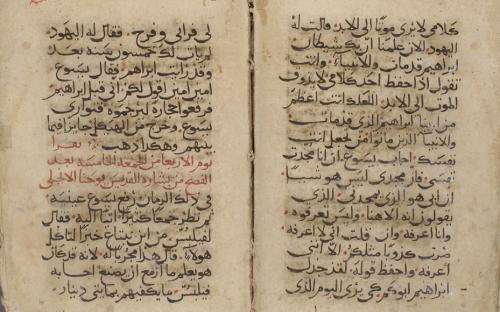 كلامي لا يرى موتًا الى الابد قالت له
اليهود الان علمنا ان بك شيطان
ابرهيم قد مات والانبياء وانت
تقول ان احفظ احد كلامي لا يذوق
الموت الى الابد العلك انت اعظم
من ابينا ابراهيم الذي قد مات
والانبيا الذين ماتوا من تجعل انت
نفسك اجاب يسوع ان انا مجدت
نفسي فاز مجدي ليس هو شيا
ابي هو الذي مجدني الذي
تقولون انه الاهنا وليس تعرفوه
وانا اعرفه وان قلت اني لا اعرفه
صرت كذوبا مثلكم الا انني
اعرفه واحفظ قوله لقد جذل
ابراهيم ابوكم كي يرى اليوم الذي
لي فراى وفرح فقال له اليهود
لم يات لك خمسون سنة بعد
وقد رايت ابراهيم وقال يسوع
امين امين اقول لكم اني قبل ابراهيم
فرفعوا حجارة ليرجموه فتوارى
يسوع وخرج من الهيكل جايز فيما
بينهم وهكذا ذهب يقرا
يوم الاربعا من الجمعة الخامسة بعد
الفصح من بشارة القديس يوحنا الانجيلي
في ذلك الزمان رفع يسوع عينيه
ثم نظر جمعا كثيرا اتيا اليه فقال
لفيلبس من اين نبتاع خبزا لتاكل
هولاء قال هذا مجربا له لانه قد كان
هو يعلم ما ازمع ان يصنع اجابه
فيلبس ما يكفيهم بمايتي دينار